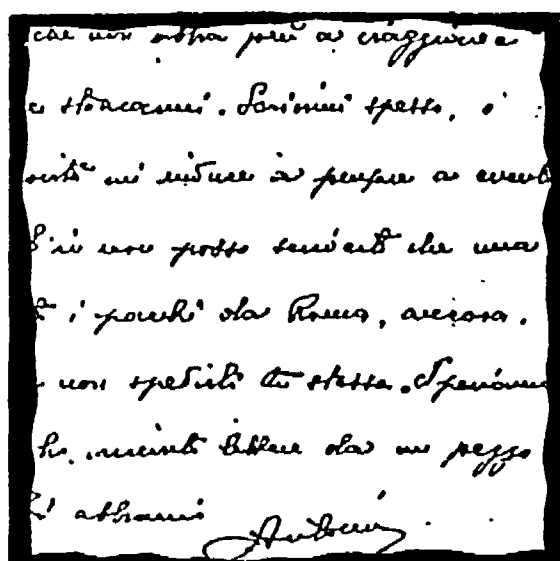 che non abbia più a viaggiare
e straccarmi. Scrivimi spesso,
mi induce a pensare a
Io non posso scriverti che una
i pacchi da Roma, ancora.
non spediti tu stessa. Speriamo
ho lettere da un pezzo
Ti abbraccio
Antonio